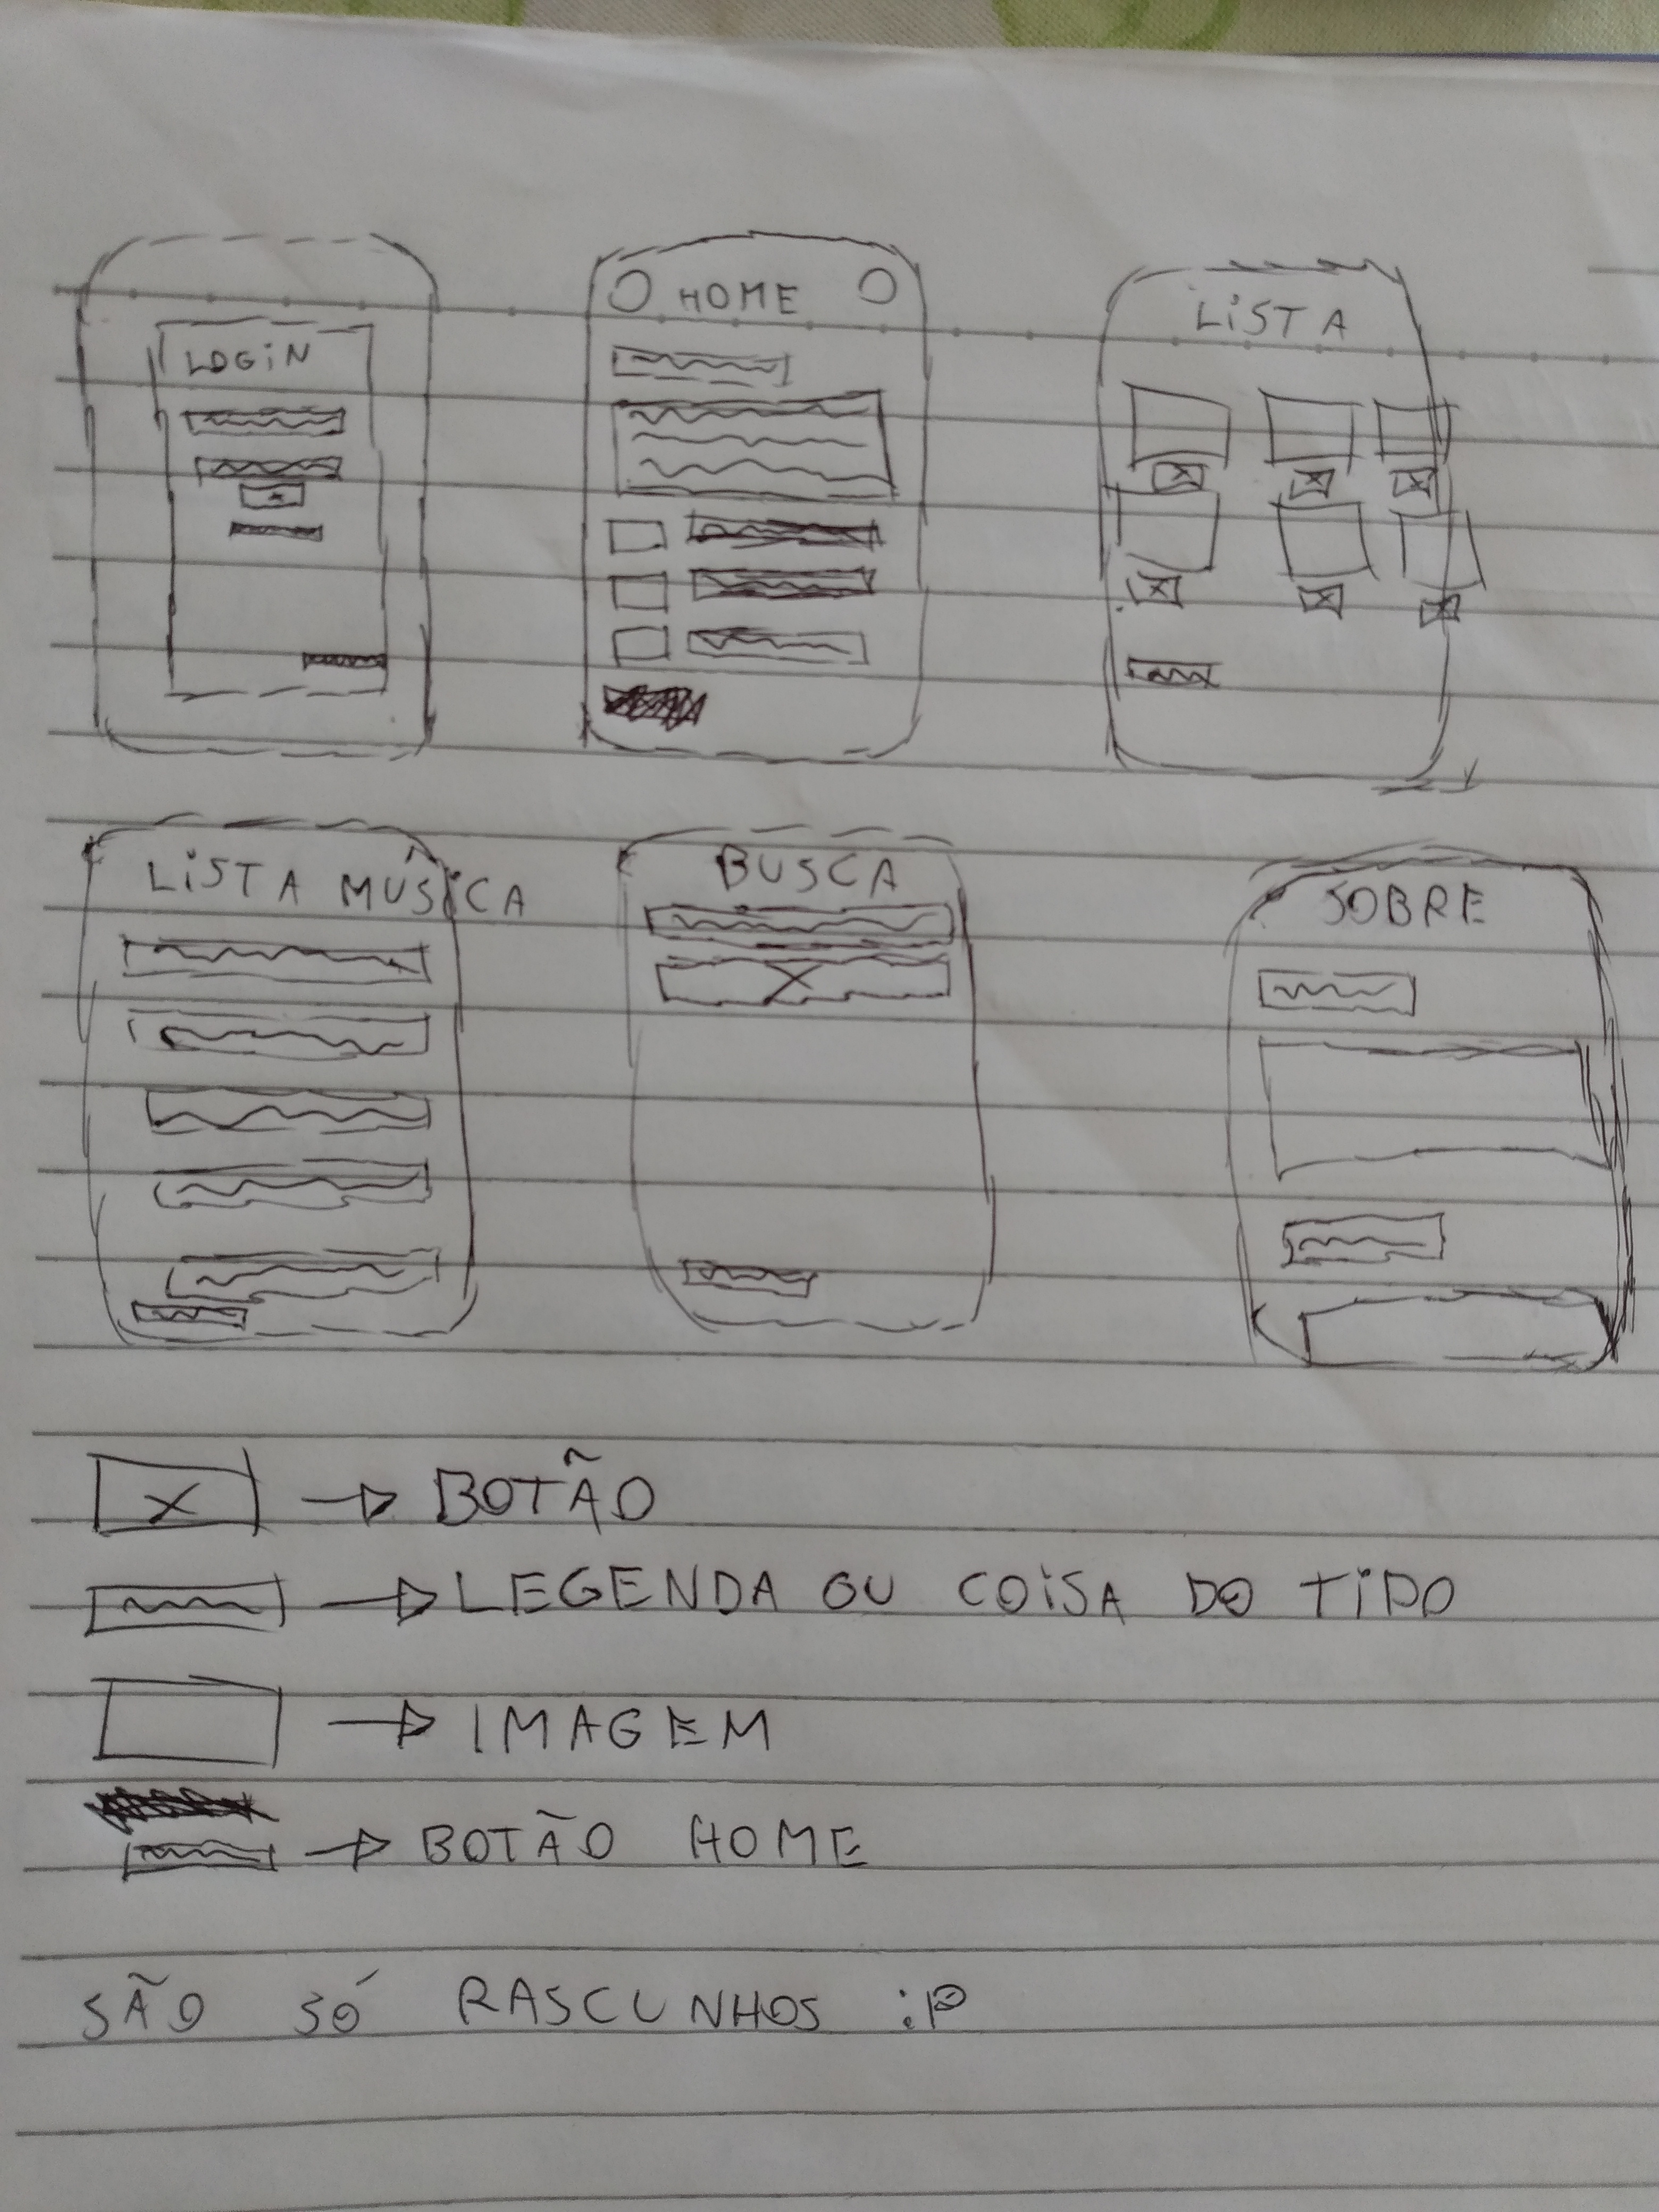 LOGiN
HOME
LiSTA
LiSTA MÚSiCA
BUSCA
SOBRE
X → BOTÃO
→ LEGENDA OU COiSA DO TiPO
→ IMAGEM
→ BOTÃO HOME
SÃO SÓ RASCUNHOS :P